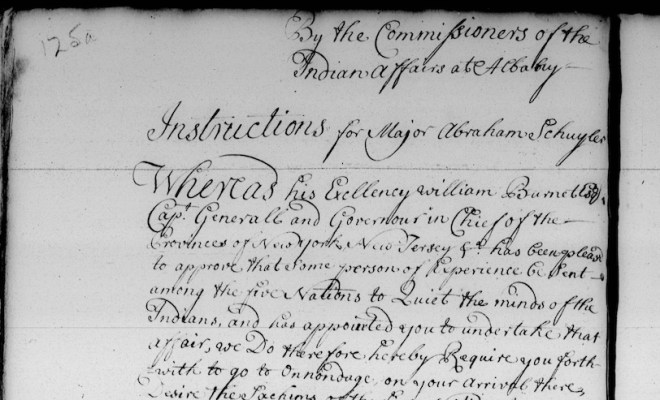 125a
By the Commissioners of the
Indian Affairs at Albany
Instructions for Major Abraham Schuyler
Whereas his Exellency William Burnet Esqr.
Capt. Generall and Governour in Chief of the
Provinces of New York, New Jersey &c. has been please
to approve that some person of Experience be sent
among the five Nations to Quiet the minds of the
Indians, and has appointed you to undertake that
affair, we Do therefore hereby Require you forth
with to go to Onnondage, on your Arrival there,
Desire the Sachims of the